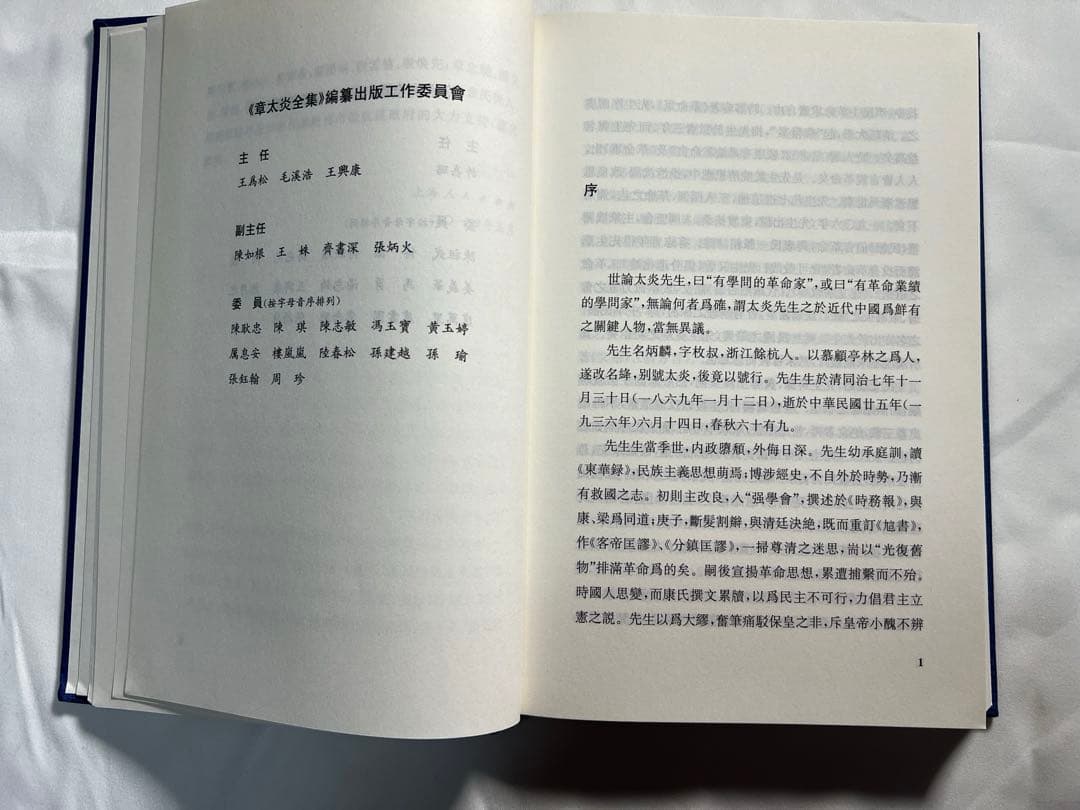 《章太炎全集》編纂出版工作委員會
主 任
王爲松 毛溪浩 王興康
副主任
陳如根 王 姝 齊書深 張炳火
委 員(按字母音序排列)
陳耿忠 陳 琪 陳志敏 馮玉寶 黄玉婷
厲息安 樓嵐嵐 陸春松 孫建越 孫 瑜
張鈺翰 周 珍
序
世論太炎先生，曰“有學問的革命家”，或曰“有革命業績
的學問家”，無論何者爲確，謂太炎先生之於近代中國爲鮮有
之關鍵人物，當無異議。
先生名炳麟，字枚叔，浙江餘杭人。以慕顧亭林之爲人，
遂改名絳，别號太炎，後竟以號行。先生生於清同治七年十一
月三十日(一八六九年一月十二日)，逝於中華民國廿五年(一
九三六年)六月十四日，春秋六十有九。
先生生當季世，内政隳頽，外侮日深。先生幼承庭訓，讀
《東華録》，民族主義思想萌焉；博涉經史，不自外於時勢，乃漸
有救國之志。初則主改良，入“强學會”，撰述於《時務報》，與
康、梁爲同道；庚子，斷髮割辮，與清廷決絶，既而重訂《訄書》，
作《客帝匡謬》、《分鎮匡謬》，一掃尊清之迷思，耑以“光復舊
物”排滿革命爲的矣。嗣後宣揚革命思想，累遭捕繫而不殆。
時國人思變，而康氏撰文累牘，以爲民主不可行，力倡君主立
憲之説。先生以爲大繆，奮筆痛駁保皇之非，斥皇帝小醜不辨
1